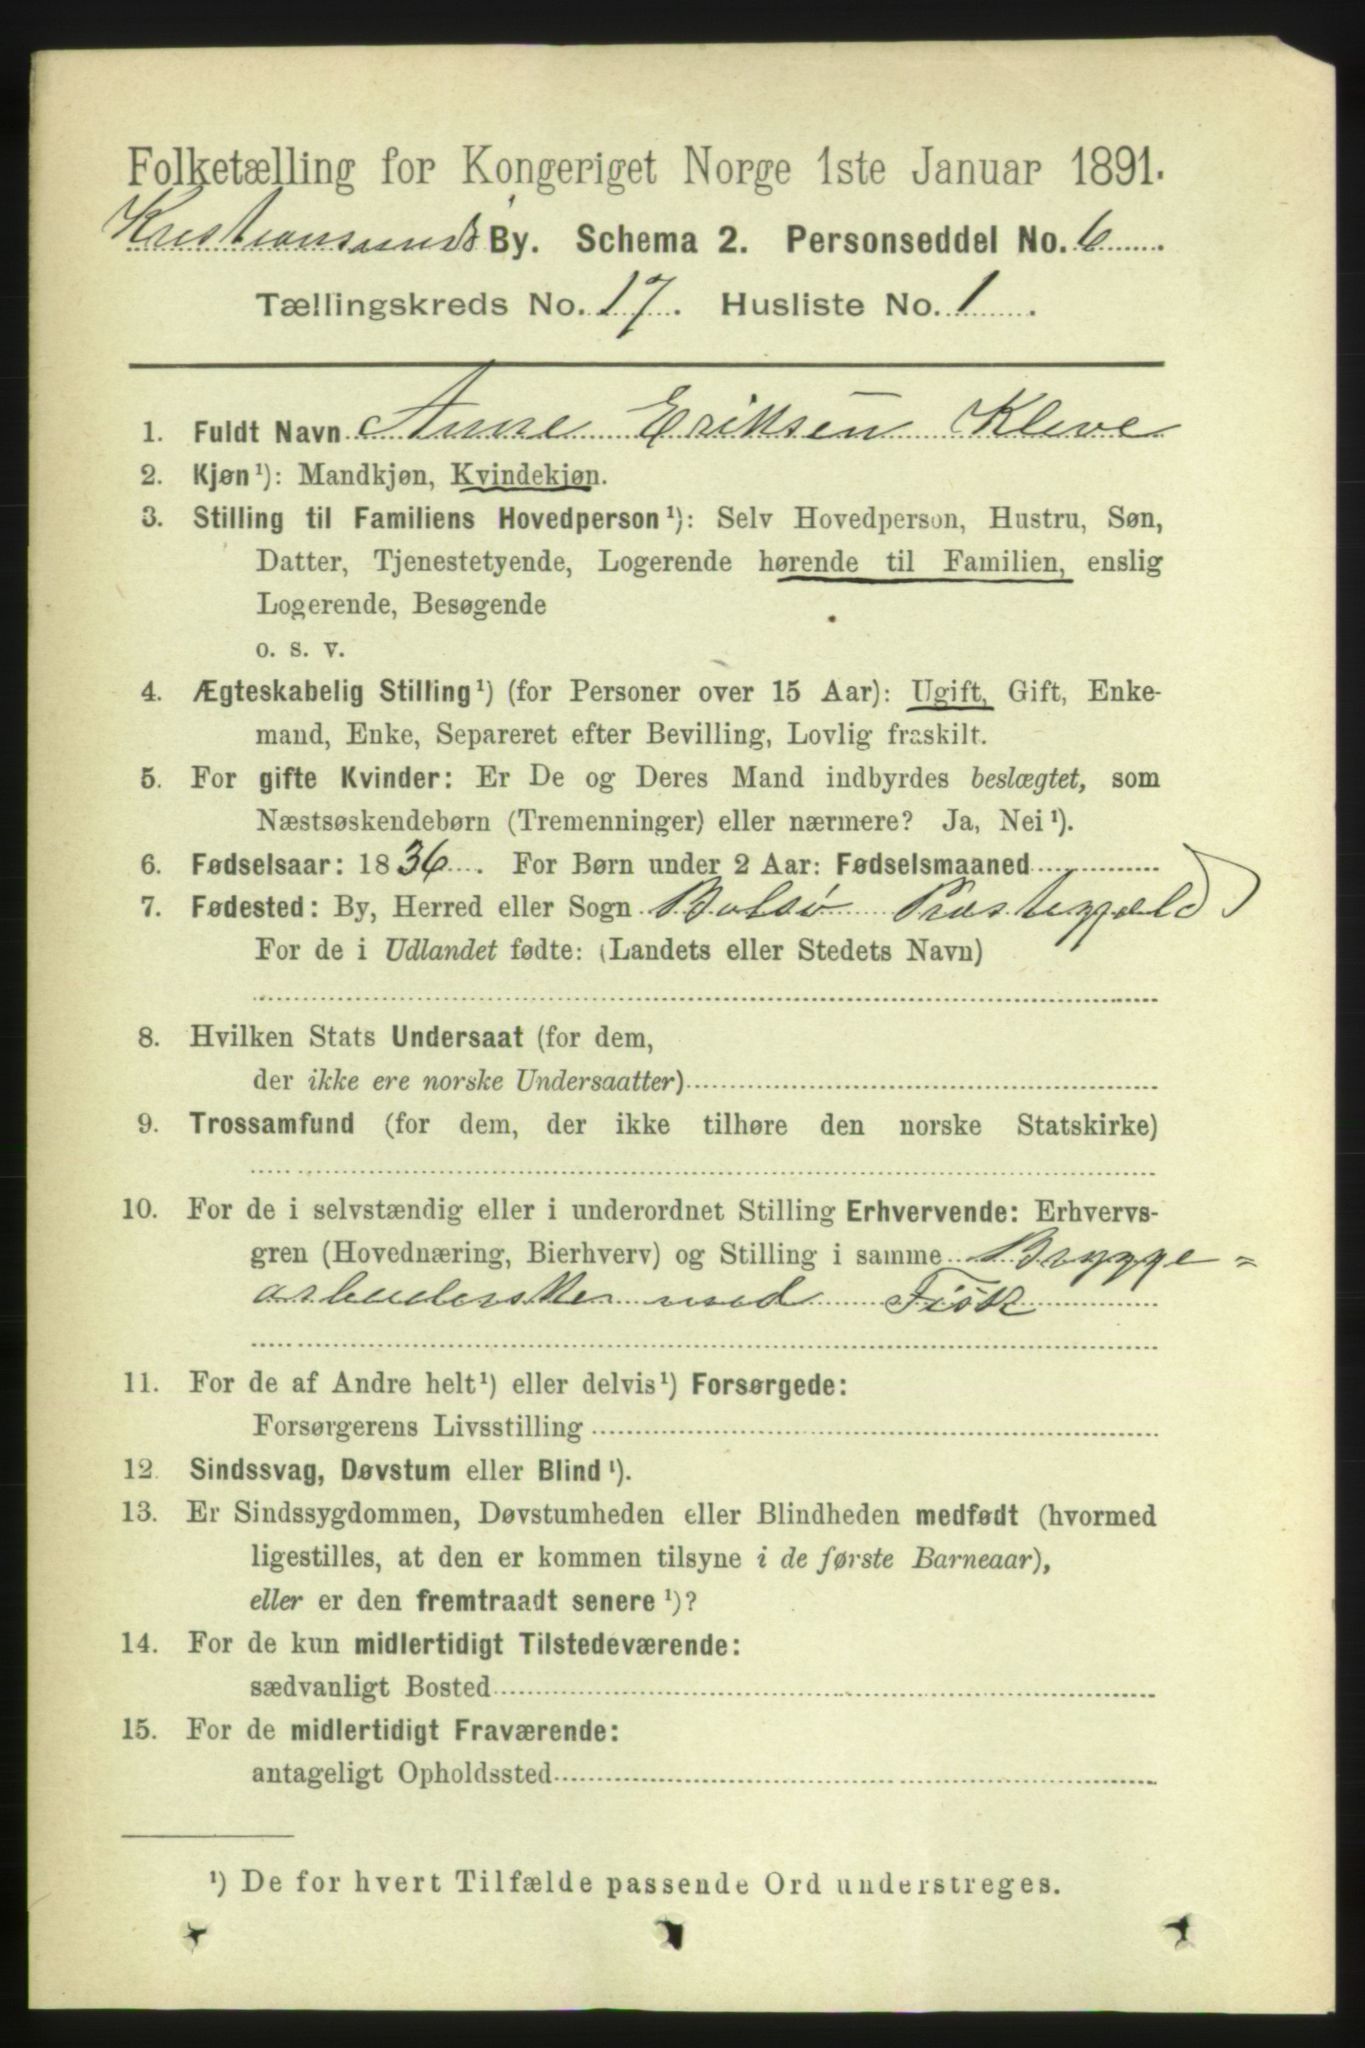 Folketælling for Kongeriget Norge 1ste Januar 1891.
Kristiansunds By. Schema 2. Personseddel No. 6
Tællingskreds No. 17. Husliste No. 1.
1. Fuldt Navn Anne Eriksen Kleve
2. Kjøn¹): Mandkjøn, Kvindekjøn.
3. Stilling til Familiens Hovedperson¹): Selv Hovedperson, Hustru, Søn,
Datter, Tjenestetyende, Logerende hørende til Familien, enslig
Logerende, Besøgende
o. s. v.
4. Ægteskabelig Stilling¹) (for Personer over 15 Aar): Ugift, Gift, Enke-
mand, Enke, Separeret efter Bevilling, Lovlig fraskilt.
5. For gifte Kvinder: Er De og Deres Mand indbyrdes beslægtet, som
Næstsøskendebørn (Tremenninger) eller nærmere? Ja, Nei¹).
6. Fødselsaar: 1836. For Børn under 2 Aar: Fødselsmaaned
7. Fødested: By, Herred eller Sogn Bolsø Præstegjæld
For de i Udlandet fødte: (Landets eller Stedets Navn)
8. Hvilken Stats Undersaat (for dem,
der ikke ere norske Undersaatter)
9. Trossamfund (for dem, der ikke tilhøre den norske Statskirke)
10. For de i selvstændig eller i underordnet Stilling Erhvervende: Erhvervs-
gren (Hovednæring, Bierhverv) og Stilling i samme Brygge=
arbeiderske med Fisk
11. For de af Andre helt¹) eller delvis¹) Forsørgede:
Forsørgerens Livsstilling
12. Sindssvag, Døvstum eller Blind¹).
13. Er Sindssygdommen, Døvstumheden eller Blindheden medfødt (hvormed
ligestilles, at den er kommen tilsyne i de første Barneaar),
eller er den fremtraadt senere¹)?
14. For de kun midlertidigt Tilstedeværende:
sædvanligt Bosted
15. For de midlertidigt Fraværende:
antageligt Opholdssted
¹) De for hvert Tilfælde passende Ord understreges.